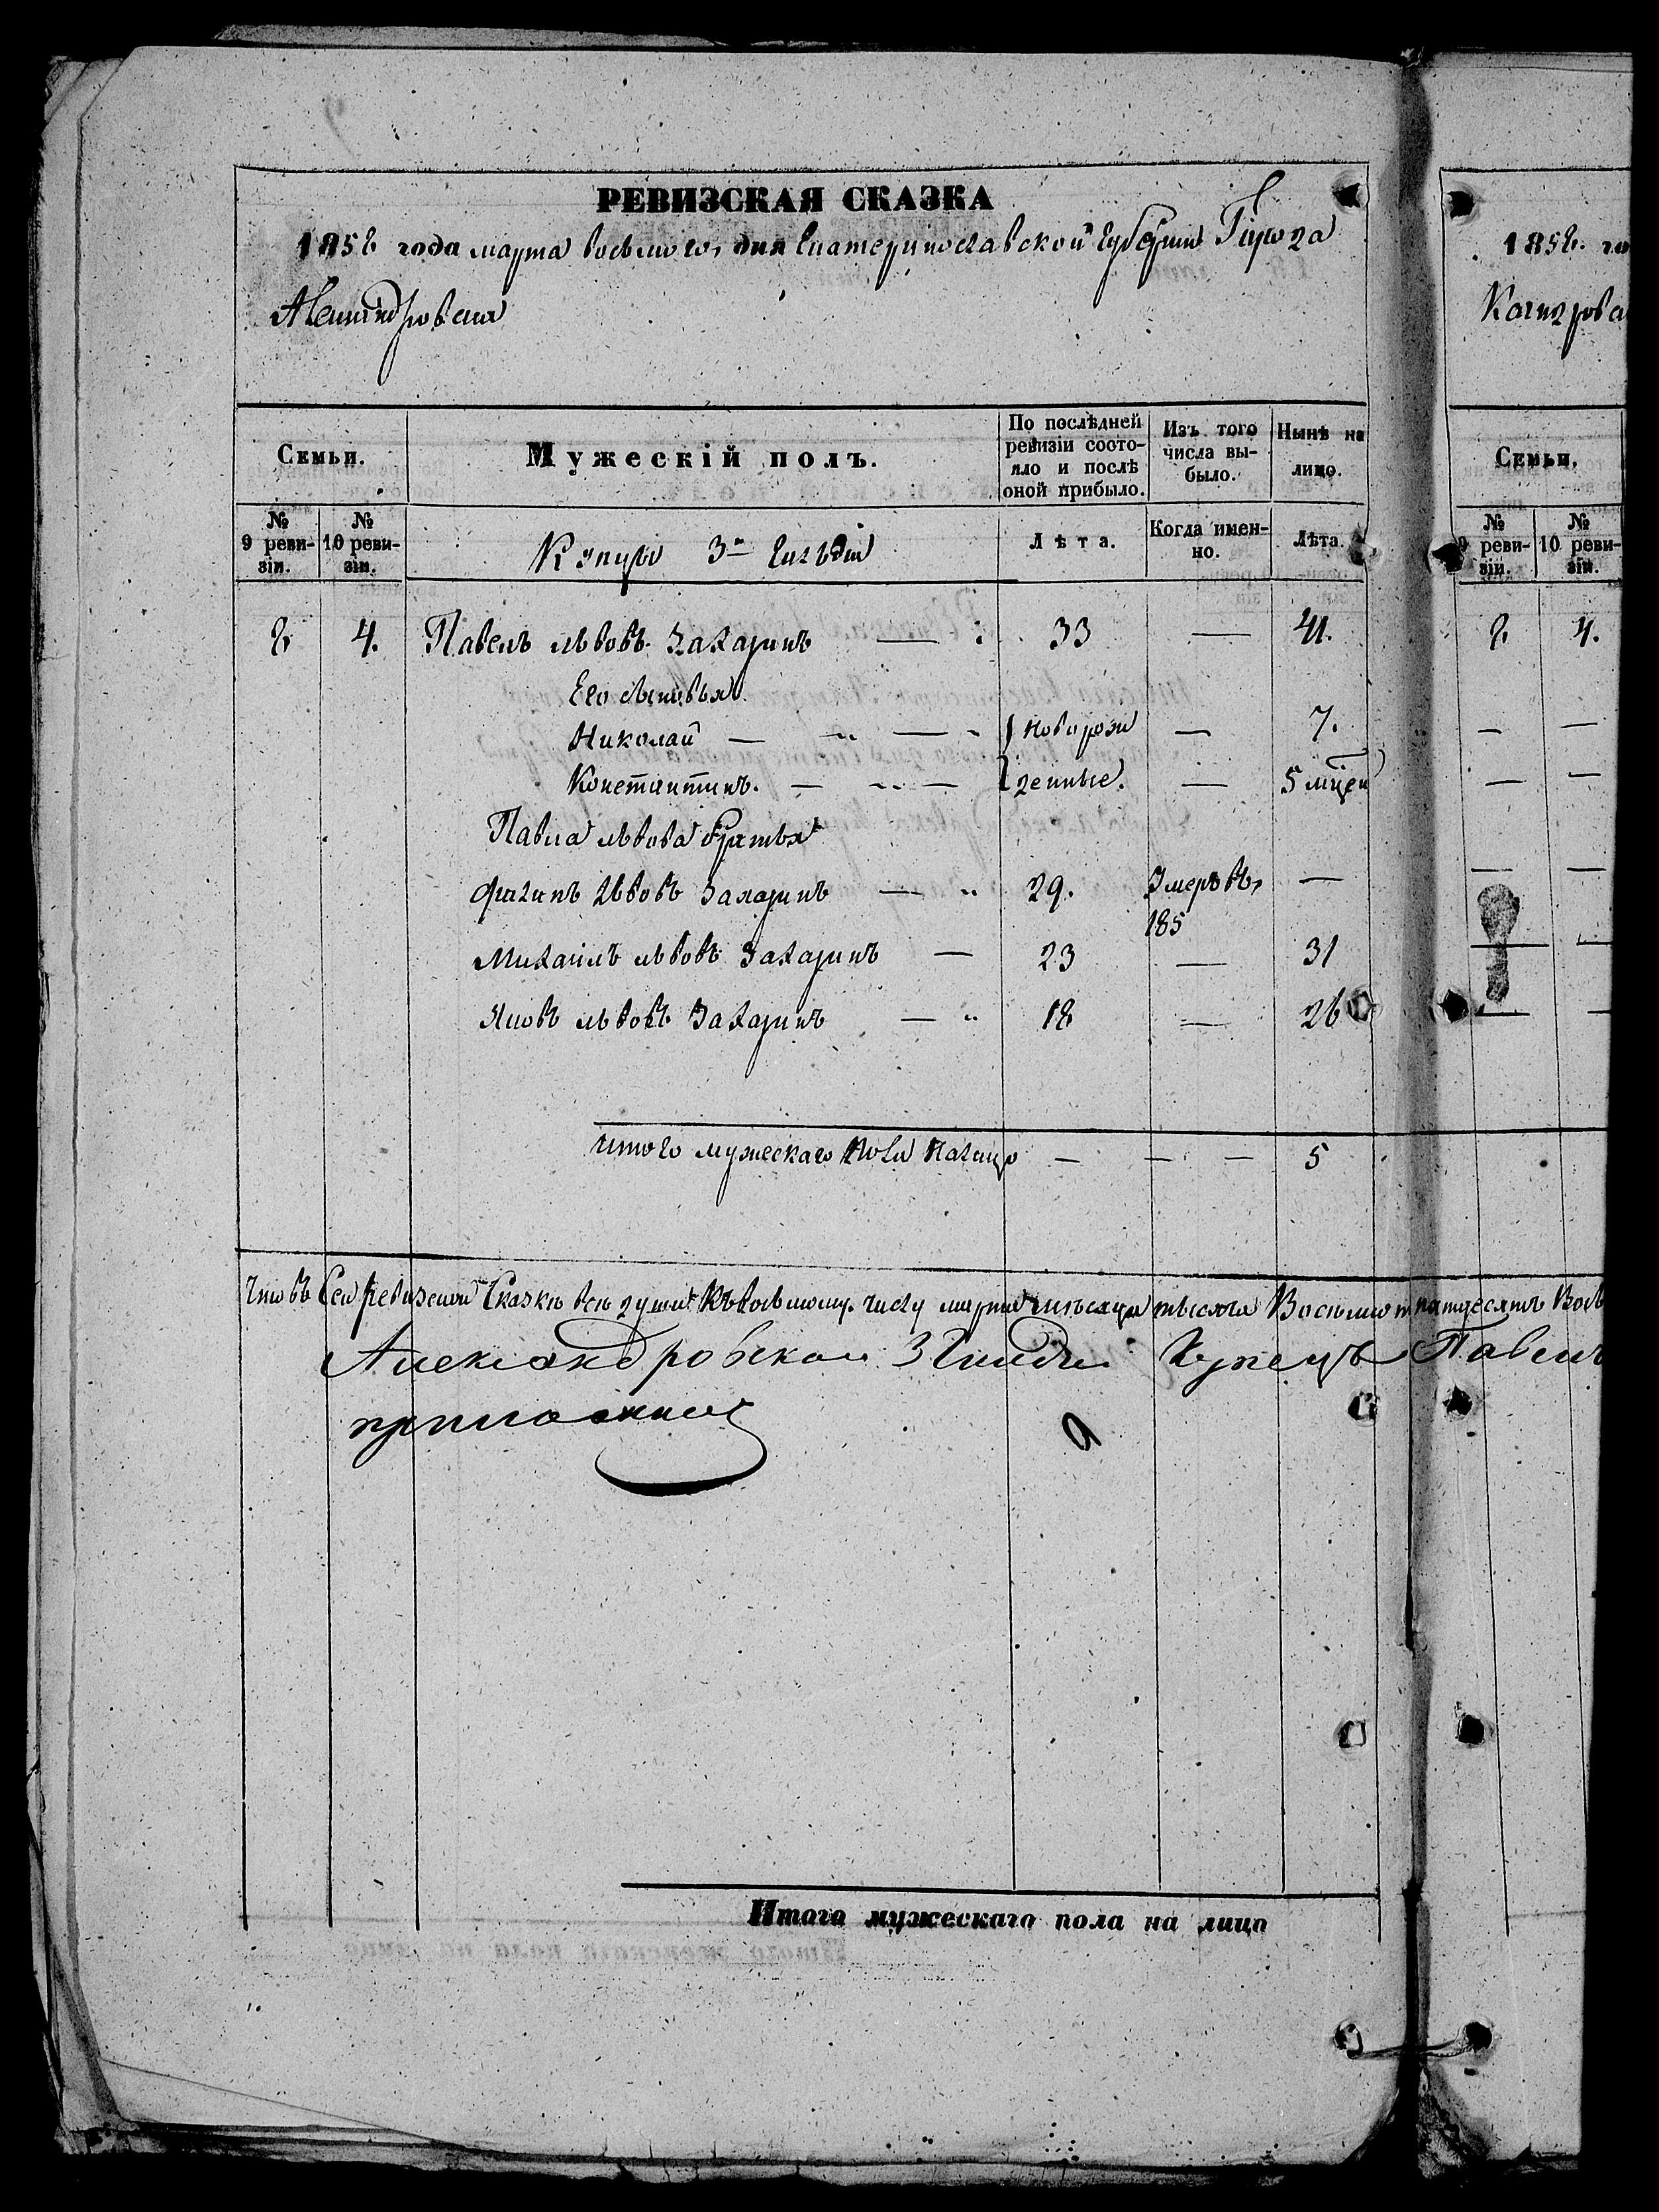 РЕВИЗСКАЯ СКАЗКА
1858 года марта восьмого дня Екатеринославской Губерніи Города
Александровска
Семьи.
Мужескій полъ.
По послѣдней ревизіи состояло и послѣ оной прибыло.
Изъ того числа выбыло.
Нынѣ на лицо.
№ 9 ревизіи.
№ 10 ревизіи.
Купцы 3й Гильдіи
Лѣта.
Когда именно.
Лѣта.
8 4. Павелъ Львовъ Захаринъ — 33 — 41.
Его сыновья
Николай — новорож — 7.
Константинъ. — денные. — 5 мцей
Павла Львова братья
Львовъ Захаринъ — 29. Умеръ въ —
185
Михаилъ Львовъ Захаринъ — 23 — 31
Яковъ Львовъ Захаринъ — 18 — 26
Итого мужескаго пола налицо — — — 5
Что въ сей ревизской сказкѣ всѣ души къ восьмому числу марта мѣсяца тысяча Восьмсот пятдесятъ Вось
Александровской 3 Гильдіи Купецъ Павелъ
приложилъ
Итого мужескаго пола на лицо
1858. го
Семьи.
№ 9 ревизіи.
№ 10 ревизіи.
8 4.